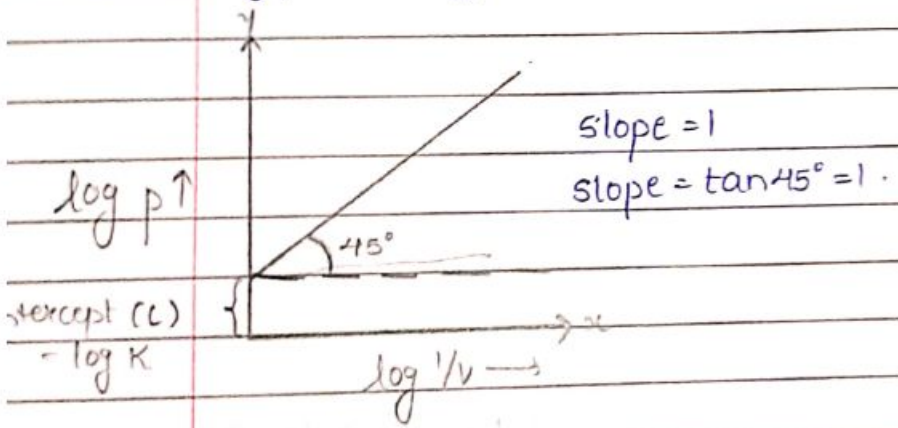 y
slope = 1
slope = tan 45° = 1.
log p ↑
45°
tercept (C)
- log K
x
log 1/v →